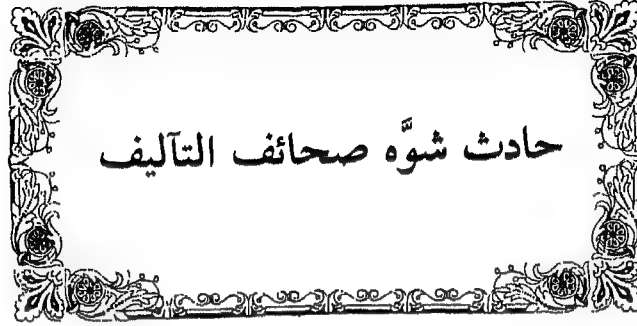 حادث شوَّه صحائف التآليف